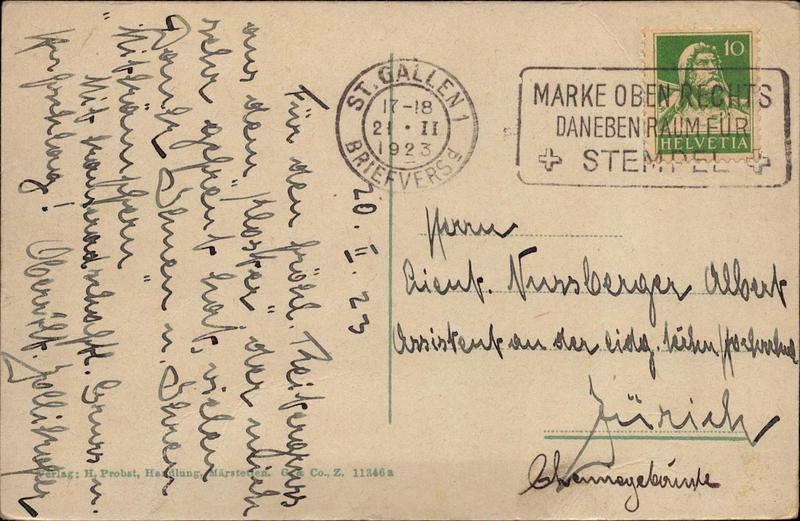 20. II. 23
Für den fröhl. Reitergruss
aus dem "Kloster" der mich
sehr gefreut hat, vielen
Dank Ihnen u. Ihren
"Mitkämpfern"
Mit kameradschaftl. Gruss u.
Handschlag!
Oberstlt. Zollikofer
ST. GALLEN 1
17-18
21 · II
1923
BRIEFVERSD
MARKE OBEN RECHTS
DANEBEN RAUM FÜR
STEMPEL
10
HELVETIA
Herrn
Lieut. Nussberger Albert
Assistent an der eidg. techn. Hochschule
Zürich
Chemiegebäude
Verlag: H. Probst, Handlung, Märstetten. G. & Co., Z. 11346a